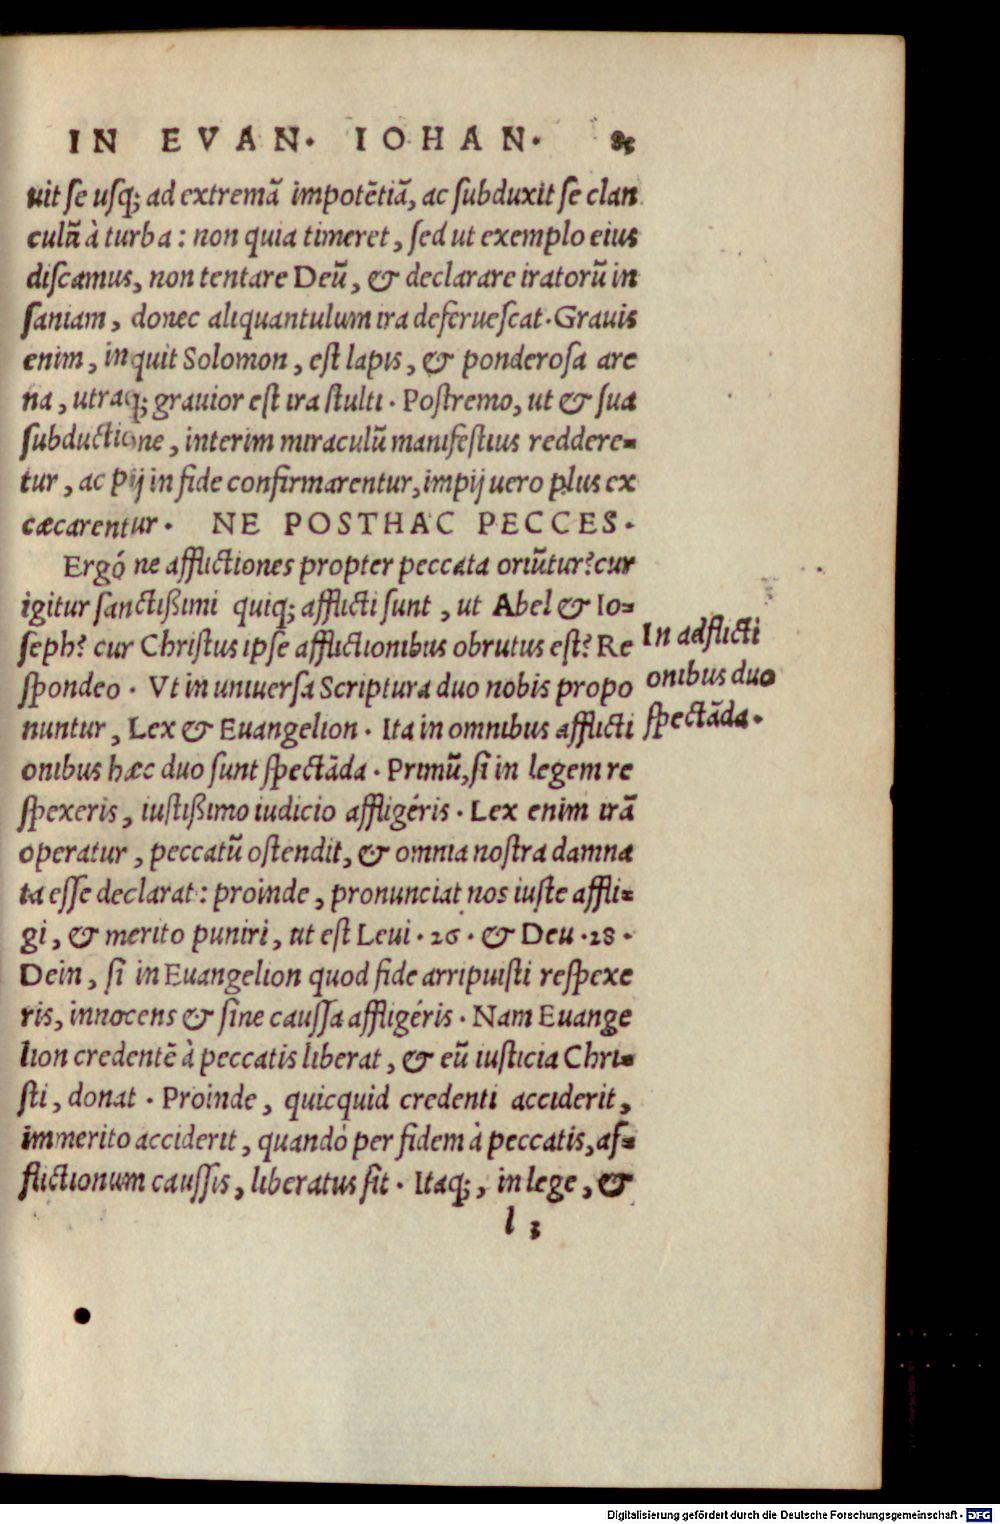 IN EVAN. IOHAN. 85
uit se usq; ad extremā impotētiā, ac subduxit se clan
culū à turba: non quia timeret, sed ut exemplo eius
discamus, non tentare Deū, & declarare iratorū in
saniam, donec aliquantulum ira deferuescat. Grauis
enim, inquit Solomon, est lapis, & ponderosa are
na, utraq; grauior est ira stulti. Postremo, ut & sua
subductione, interim miraculū manifestius reddere=
tur, ac pij in fide confirmarentur, impij uero plus ex
cæcarentur. NE POSTHAC PECCES.
Ergó ne afflictiones propter peccata oriūtur? cur
igitur sanctißimi quiq; afflicti sunt, ut Abel & Io=
seph? cur Christus ipse afflictionibus obrutus est? Re
spondeo. Vt in uniuersa Scriptura duo nobis propo
nuntur, Lex & Euangelion. Ita in omnibus afflicti
onibus hæc duo sunt spectāda. Primū, si in legem re
spexeris, iustißimo iudicio affligéris. Lex enim irā
operatur, peccatū ostendit, & omnia nostra damna
ta esse declarat: proinde, pronunciat nos iuste affli=
gi, & merito puniri, ut est Leui. 26. & Deu. 28.
Dein, si in Euangelion quod fide arripuisti respexe
ris, innocens & sine caussa affligéris. Nam Euange
lion credentē à peccatis liberat, & eū iusticia Chri=
sti, donat. Proinde, quicquid credenti acciderit,
immerito acciderit, quandó per fidem à peccatis, af=
flictionum caussis, liberatus sit. Itaq;, in lege, &
l 3
In adflicti
onibus duo
spectāda.
Digitalisierung gefördert durch die Deutsche Forschungsgemeinschaft - DFG